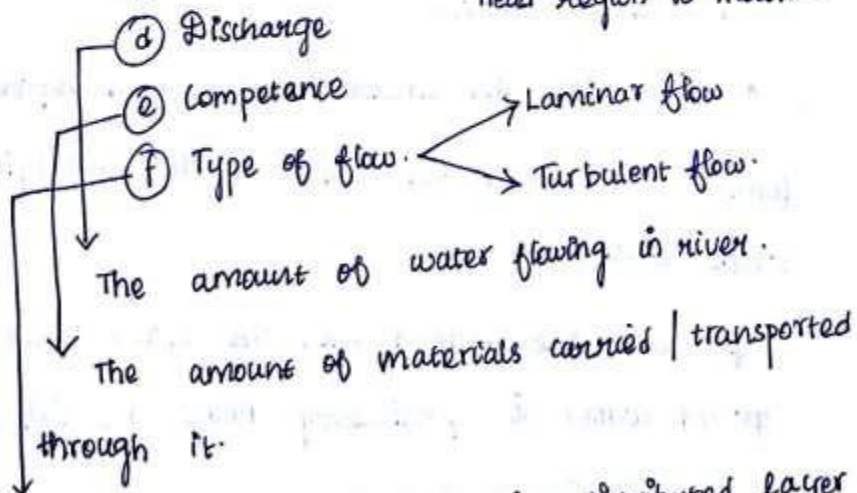 ⓓ Discharge
ⓔ Competence
ⓕ Type of flow.
Laminar flow
Turbulent flow.
The amount of water flowing in river.
The amount of materials carried | transported
through it.
layer